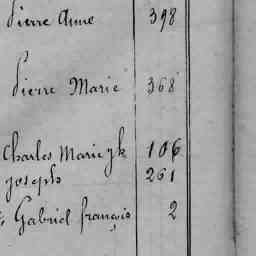 Pierre Anne 398
Pierre Marie 368
Charles Marie 106
joseph 261
Gabriel françois 2